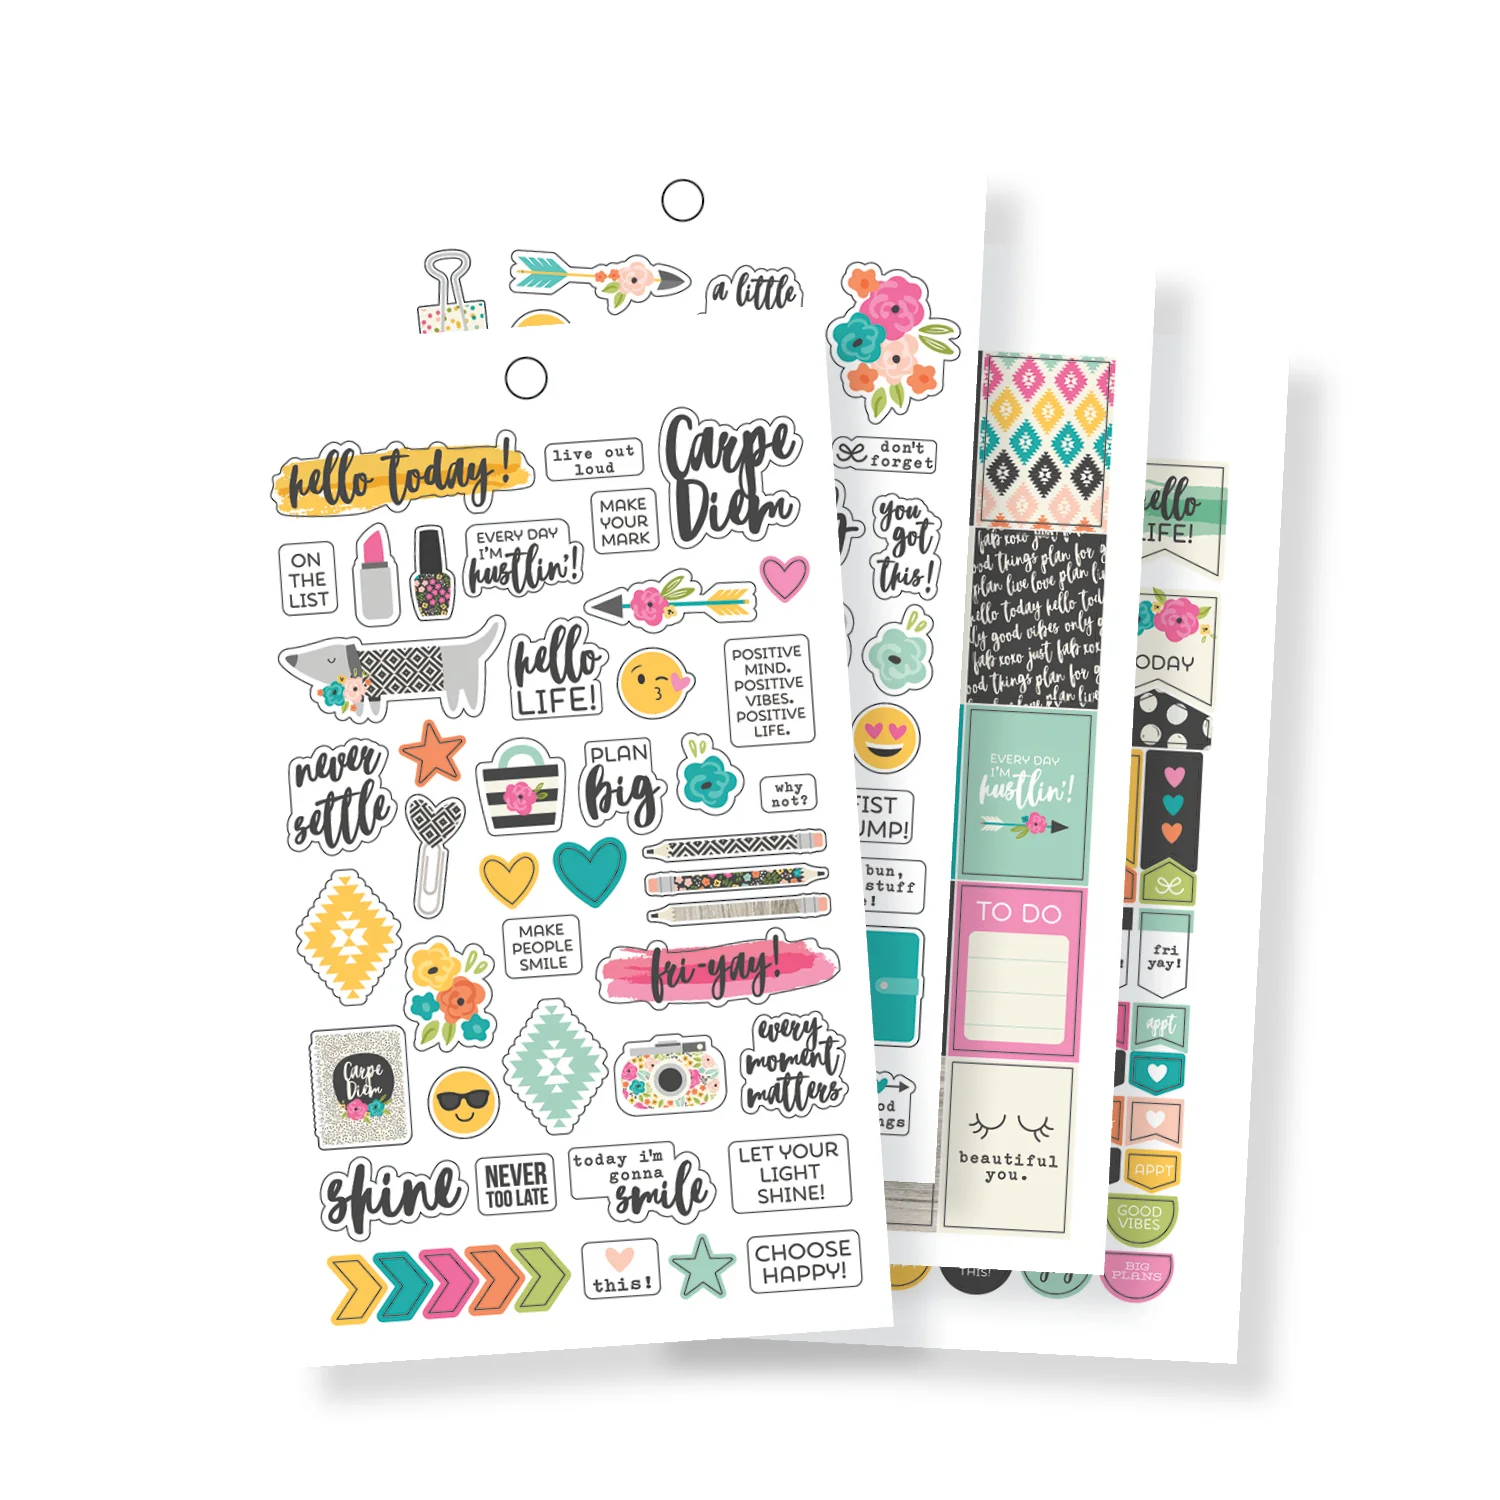 a little
hello today!
live out
loud
Carpe
Diem
MAKE
YOUR
MARK
ON
THE
LIST
EVERY DAY
I'M
hustlin'!
hello
LIFE!
POSITIVE
MIND.
POSITIVE
VIBES.
POSITIVE
LIFE.
never
settle
PLAN
big
why
not?
MAKE
PEOPLE
SMILE
fri-yay!
Carpe
Diem
every
moment
matters
shine
NEVER
TOO LATE
today i'm
gonna
smile
LET YOUR
LIGHT
SHINE!
this!
CHOOSE
HAPPY!
don't
forget
you
got
this!
bun,
stuff
fab xoxo just fab xoxo
good things plan for
plan live love plan
hello today hello
good vibes only
fab xoxo just fab xoxo
good things plan for
plan live love plan
EVERY DAY
I'M
hustlin'!
TO DO
beautiful
you.
hello
LIFE!
fri
yay!
appt
APPT
GOOD
VIBES
THIS!
BIG
PLANS